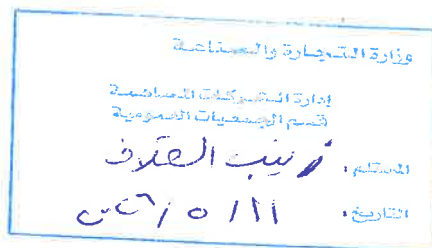 وزارة التجارة والصناعة
إدارة الشركات المساهمة
قسم الجمعيات العمومية
المستلم : زينب القلاف
التاريخ :